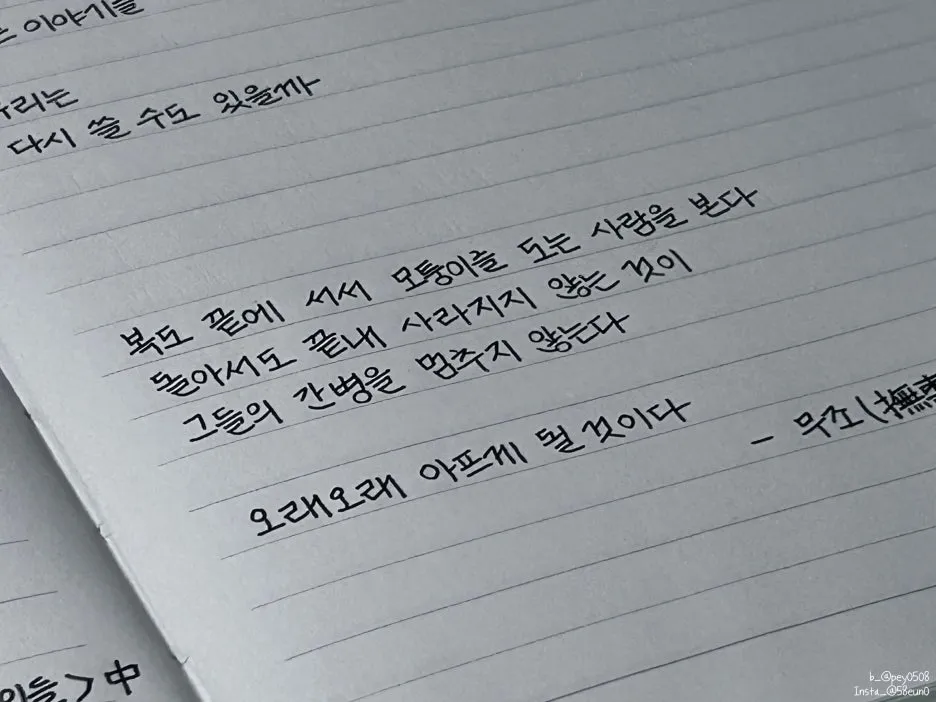 이야기들
우리는
다시 쓸 수도 있을까
복도 끝에 서서 모퉁이를 도는 사람을 본다
돌아서도 끝내 사라지지 않는 것이
그들의 간병을 멈추지 않는다
오래오래 아프게 될 것이다
- 무소(撫
들> 中
b_@pey0508
Insta_@58eun0